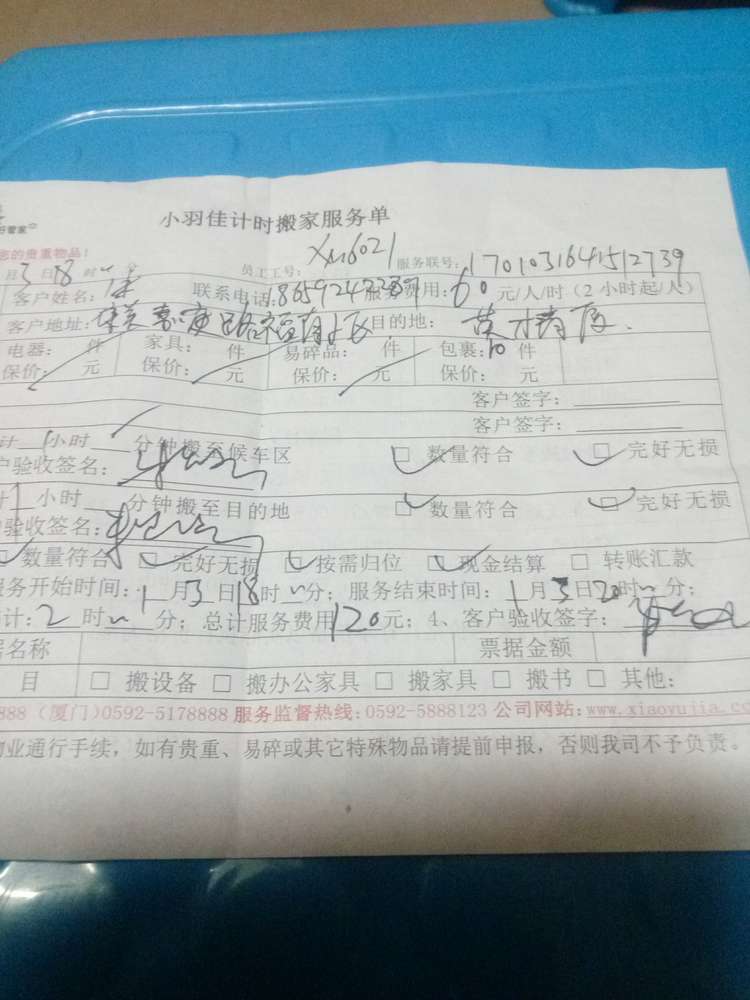 好管家
小羽佳计时搬家服务单
您的贵重物品!
月3日18时 分 员工工号: Xm6021 服务联号: 1701031641512739
客户姓名: 联系电话: 服务费用: 60元/人/时(2小时起/人)
客户地址: 目的地:
电器: 件 家具: 件 易碎品: 件 包裹:10件
保价: 元 保价: 元 保价: 元 保价: 元
客户签字:
客户签字:
计1小时 分钟搬至候车区 数量符合 完好无损
户验收签名:
计1小时 分钟搬至目的地 数量符合 完好无损
户验收签名:
数量符合 完好无损 按需归位 现金结算 转账汇款
服务开始时间:1月3日18时 分; 服务结束时间:1月3日20时 分;
计:2时 分; 总计服务费用120元; 4、客户验收签字:
据名称 票据金额
目 搬设备 搬办公家具 搬家具 搬书 其他:
888 (厦门)0592-5178888 服务监督热线:0592-5888123 公司网站:www.xiaoyujia.co
物业通行手续,如有贵重、易碎或其它特殊物品请提前申报,否则我司不予负责。